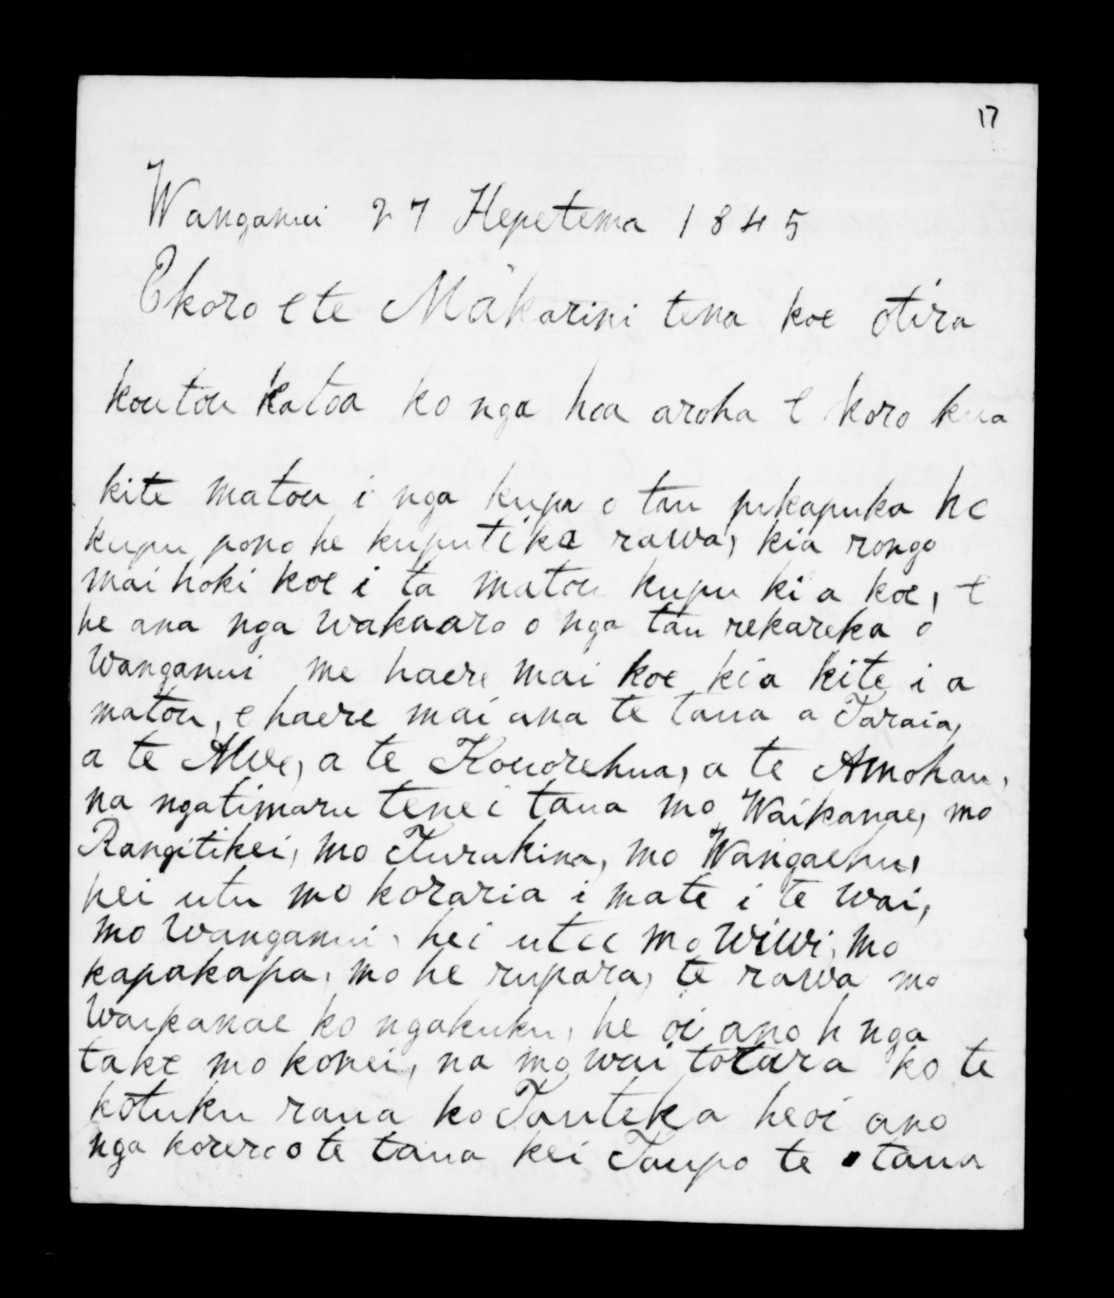 17
Wanganui 27 Hepetema 1845
E koro e te Mākarini tena koe otira
koutou katoa ko nga hoa aroha e koro kua
kite matou i nga kupu o tau pukapuka he
kupu pono he kupu tika rawa, kia rongo
mai hoki koe i ta matou kupu ki a koe, e
he ana nga wakaaro o nga tau rekareka o
Wanganui me haere mai koe kia kite i a
matou, e haere mai ana te taua a Taraia,
a te a te a te Amohau,
na ngatimaru tenei taua mo Waikanae, mo
Rangitikei, mo Turakina, mo Wangaehu,
hei utu mo koraria i mate i te wai,
mo Wanganui, hei utu mo Wiwi, mo
kapakapa, mo he rupara, te rawa mo
Waikanae ko ngakuku, he oi ano h nga
take mo konei, na mo wai totara ko te
kotuku raua ko Tauteka heoi ano
nga korero o te taua kei Taupo te taua